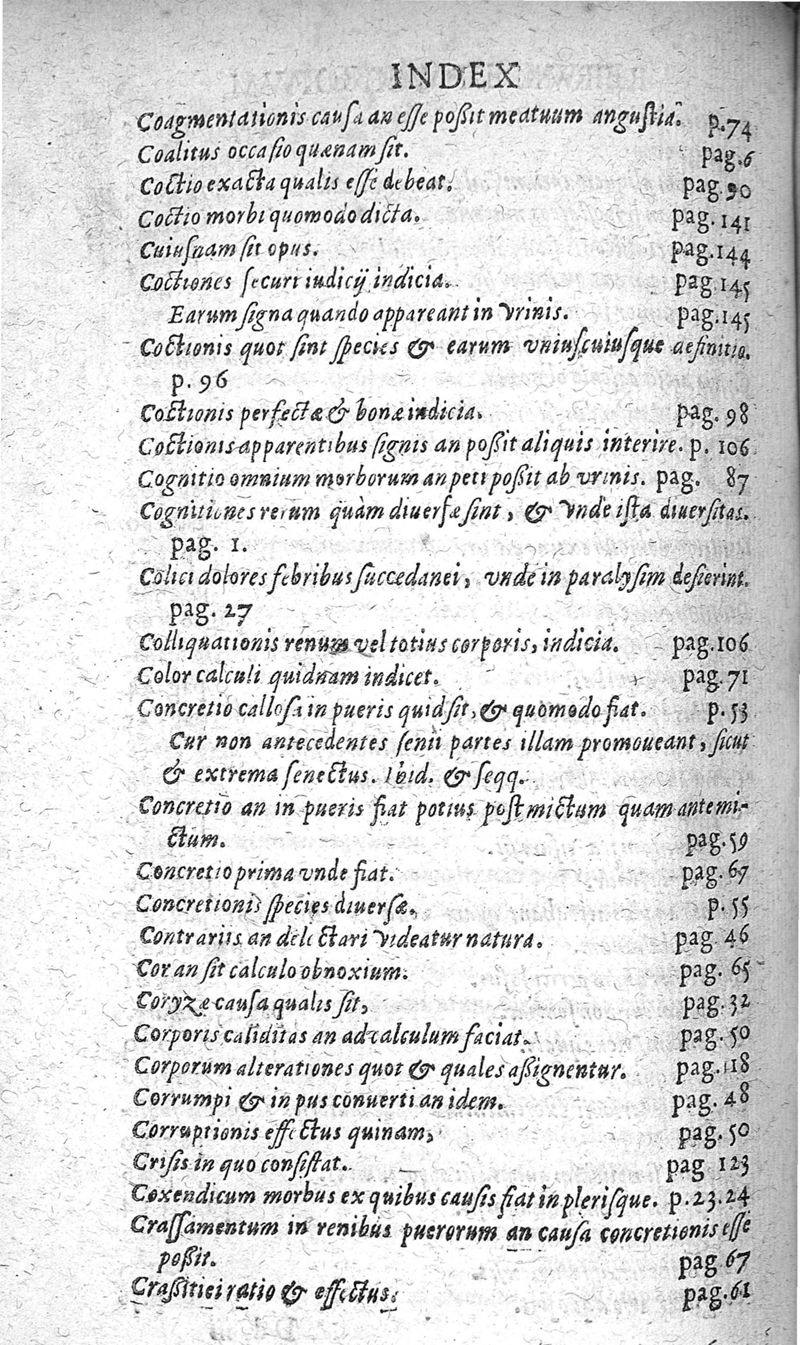 INDEX
Coagmentationis causa an esse poßit meatuum angustia. p.74
Coalitus occasio quænam sit. pag.6
Coctio exacta qualis esse debeat. pag.90
Coctio morbi quomodo dicta. pag.141
Cuiusnam sit opus. pag.144
Coctiones securi iudicij indicia. pag.145
Earum signa quando appareant in vrinis. pag.145
Coctionis quot sint species & earum vniuscuiusque definitio.
p. 96
Coctionis perfectæ & bonæ indicia. pag. 98
Coctionis apparentibus signis an poßit aliquis interire. p. 106
Cognitio omnium morborum an peti poßit ab vrinis. pag. 87
Cognitiones rerum quàm diuersæ sint, & vnde ista diuersitas.
pag. 1.
Colici dolores febribus succedanei, vnde in paralysim desierint.
pag. 27
Colliquationis renum vel totius corporis, indicia. pag.106
Color calculi quidnam indicet. pag.71
Concretio callosa in pueris quid sit, & quomodo fiat. p.53
Cur non antecedentes senii partes illam promoueant, sicut
& extrema senectus. Ibid. & seqq.
Concretio an in pueris fiat potius post mictum quam ante mi-
ctum. pag.59
Concretio prima vnde fiat. pag.67
Concretionis species diuersæ. p.55
Contrariis an delectari videatur natura. pag. 46
Cor an sit calculo obnoxium. pag. 65
Coryzæ causa qualis sit, pag.32
Corporis caliditas an ad calculum faciat. pag.50
Corporum alterationes quot & quales aßignentur. pag.118
Corrumpi & in pus conuerti an idem. pag. 48
Corruptionis effectus quinam, pag.50
Crisis in quo consistat. pag 123
Coxendicum morbus ex quibus causis fiat in plerisque. p.23.24
Crassamentum in renibus puerorum an causa concretionis esse
poßit. pag 67
Craßitiei ratio & effectus. pag.61